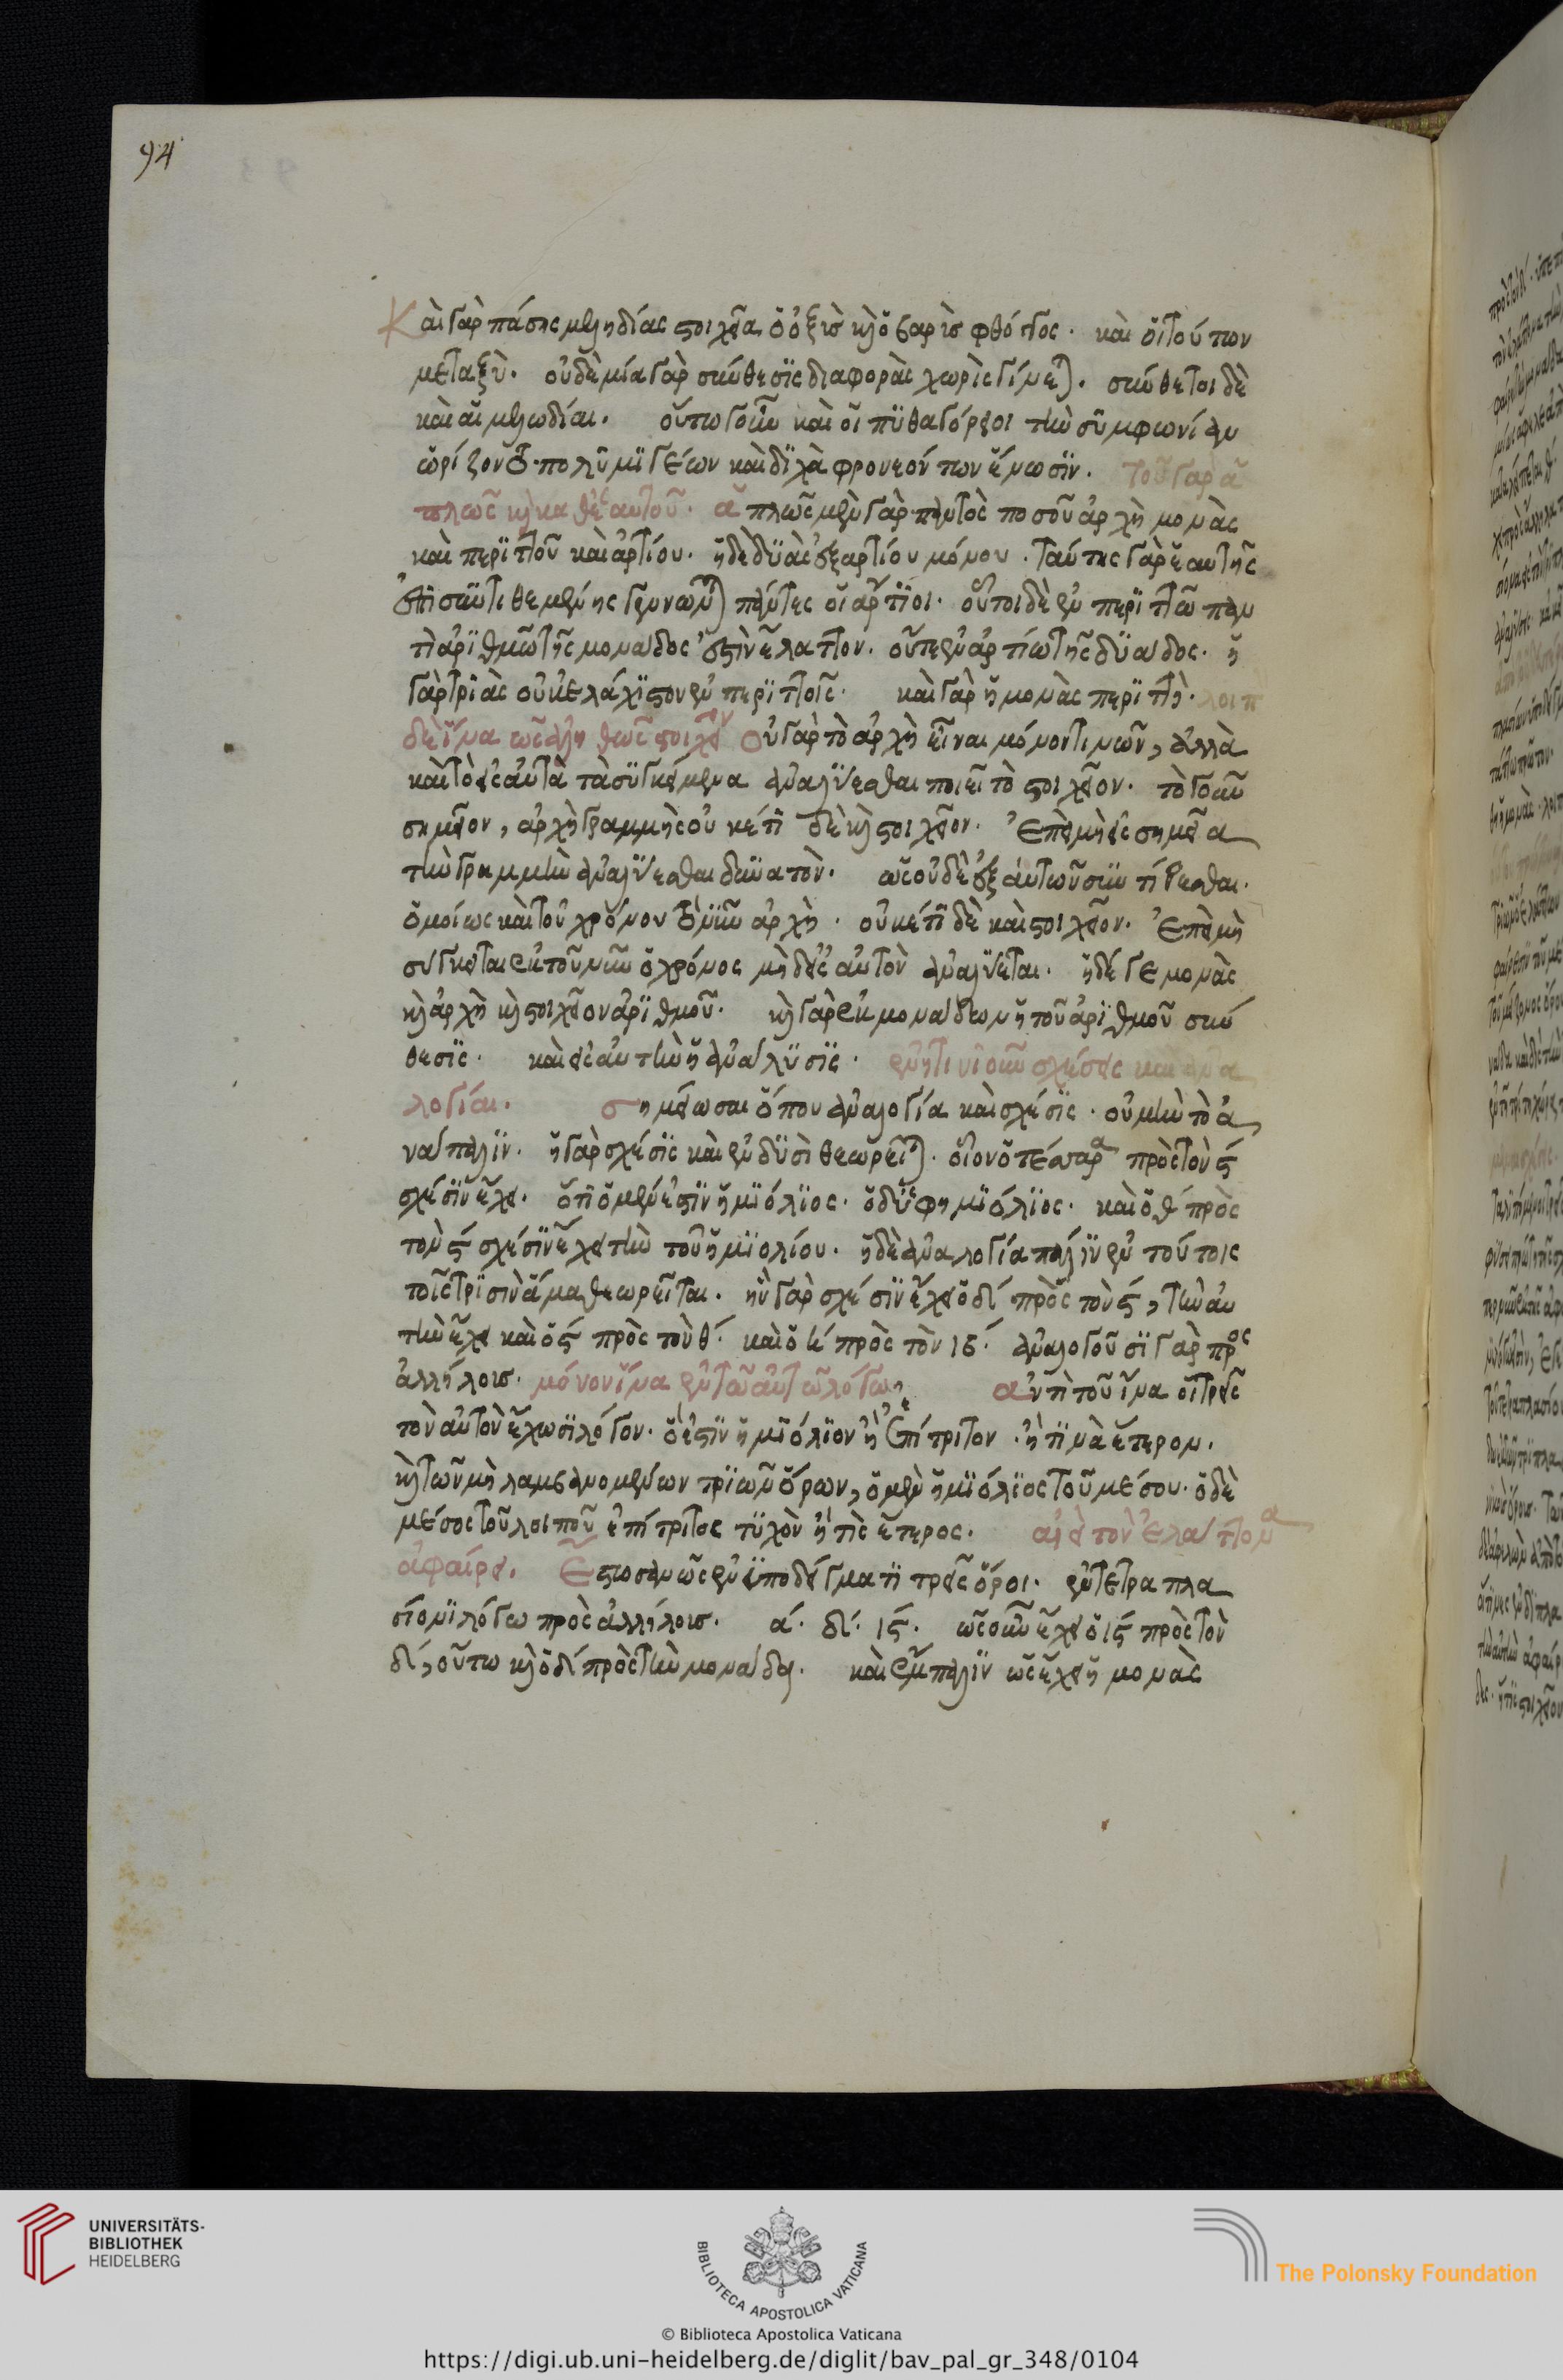 94
Καὶ γὰρ πάσης μελῳδίας στοιχεῖα ὁ ὀξὺς καὶ ὁ βαρὺς φθόγγος. καὶ οἱ τούτων
μεταξύ. οὐδεμία γὰρ σύνθεσις διαφορᾶς χωρὶς γίνεται. σύνθετοι δὲ
καὶ αἱ μελωδίαι. οὕτω γοῦν καὶ οἱ πυθαγόρειοι τὴν συμφωνίαν
ὡρίζοντο πολυμιγέων καὶ δίχα φρονεόντων ἕνωσιν. τοῦ γὰρ ἁ
πλῶς καὶ καθ' ἑαυτοῦ. ἁπλῶς μὲν γὰρ παντὸς ποσοῦ ἀρχὴ μονὰς
καὶ περιττοῦ καὶ ἀρτίου. ἡ δὲ δυὰς ἐξ ἀρτίου μόνου. ταύτης γὰρ ἑαυτῆς
ἐπισυντιθεμένης γεννῶνται πάντες οἱ ἄρτιοι. οὗτοι δὲ ἐν περιττῶ παν
τὶ ἀριθμῶ τῆς μονάδος ἐστὶν ἔλαττον. οὔτε ἐν ἀρτίω τῆς δυάδος. ἡ
γὰρ τριὰς οὐκ ἐλάχιστον ἐν περιττοῖς. καὶ γὰρ ἡ μονὰς περιττή.
δὲ ἵνα ὡς ἀληθῶς στοιχεῖον οὐ γὰρ τὸ ἀρχὴ εἶναι μόνον τινῶν, ἀλλὰ
καὶ τὸ εἰς αὐτὰ τὰ συγκείμενα ἀναλύεσθαι ποιεῖ τὸ στοιχεῖον. τὸ γοῦν
σημεῖον, ἀρχὴ γραμμῆς οὐκέτι δὲ καὶ στοιχεῖον. Ἐπεὶ μὴ εἰς σημεῖα
τὴν γραμμὴν ἀναλύεσθαι δυνατόν. ὡς οὐδὲ ἐξ αὐτῶν συντίθεσθαι.
ὁμοίως καὶ τοῦ χρόνου τὸ νῦν ἀρχή. οὐκέτι δὲ καὶ στοιχεῖον. Ἐπεὶ μὴ
σύγκειται ἐκ τοῦ νῦν ὁ χρόνος μηδ' εἰς αὐτὸν ἀναλύεται. ἡ δέ γε μονὰς
καὶ ἀρχὴ καὶ στοιχεῖον ἀριθμοῦ. καὶ γὰρ ἐκ μονάδων ἡ τοῦ ἀριθμοῦ σύν
θεσις. καὶ εἰς αὐτὴν ἡ ἀνάλυσις. ἐν ᾗτινι οὖν σχέσεις καὶ ἀνα
λογίαι. σημείωσαι ὅπου ἀναλογία καὶ σχέσις. οὐ μὴν τὸ ἀ
νάπαλιν. ἡ γὰρ σχέσις καὶ ἐν δυσὶ θεωρεῖται. οἷον ὁ τέσσαρα πρὸς τὸν ς
σχέσιν ἔχει. ὅτι ὁ μέν ἐστιν ἡμιόλιος. ὁ δὲ ὑφημιόλιος. καὶ ὁ θ πρὸς
τὸν ς σχέσιν ἔχει τὴν τοῦ ἡμιολίου. ἡ δὲ ἀναλογία πάλιν ἐν τούτοις
τοῖς τρισὶν ἅμα θεωρεῖται. ἣν γὰρ σχέσιν ἔχει ὁ δ πρὸς τὸν ς, τὴν αὐ
τὴν ἔχει καὶ ὁ ς πρὸς τὸν θ. καὶ ὁ η πρὸς τὸν ιβ. ἀναλογοῦσι γὰρ πρὸς
ἀλλήλους. μόνον ἵνα ἐν τῶ αὐτῶ λόγω, ἀντὶ τοῦ ἵνα οἱ τρεῖς
τὸν αὐτὸν ἔχωσι λόγον. ὅ ἐστιν ἡμιόλιον ἢ ἐπίτριτον. ἤ τινὰ ἕτερον.
καὶ τῶν μὴ λαμβανομένων τριῶν ὅρων, ὁ μὲν ἡμιόλιος τοῦ μέσου. ὁ δὲ
μέσος τοῦ λοιποῦ ἐπίτριτος τυχὸν ἤ τις ἕτερος. αἰεὶ τὸν ἐλάττονα
ἀφαίρει. Ἔστωσαν ὡς ἐν ὑποδείγματι τρεῖς ὅροι. ἐν τετραπλα
σίονι λόγω πρὸς ἀλλήλους. α. δ. ις. ὡς οὖν ἔχει ὁ ις πρὸς τὸν
δ, οὕτω καὶ ὁ δ πρὸς τὴν μονάδα. καὶ ἔμπαλιν ὡς ἔχει ἡ μονὰς
UNIVERSITÄTS-
BIBLIOTHEK
HEIDELBERG
BIBLIOTECA APOSTOLICA VATICANA
The Polonsky Foundation
© Biblioteca Apostolica Vaticana
https://digi.ub.uni-heidelberg.de/diglit/bav_pal_gr_348/0104